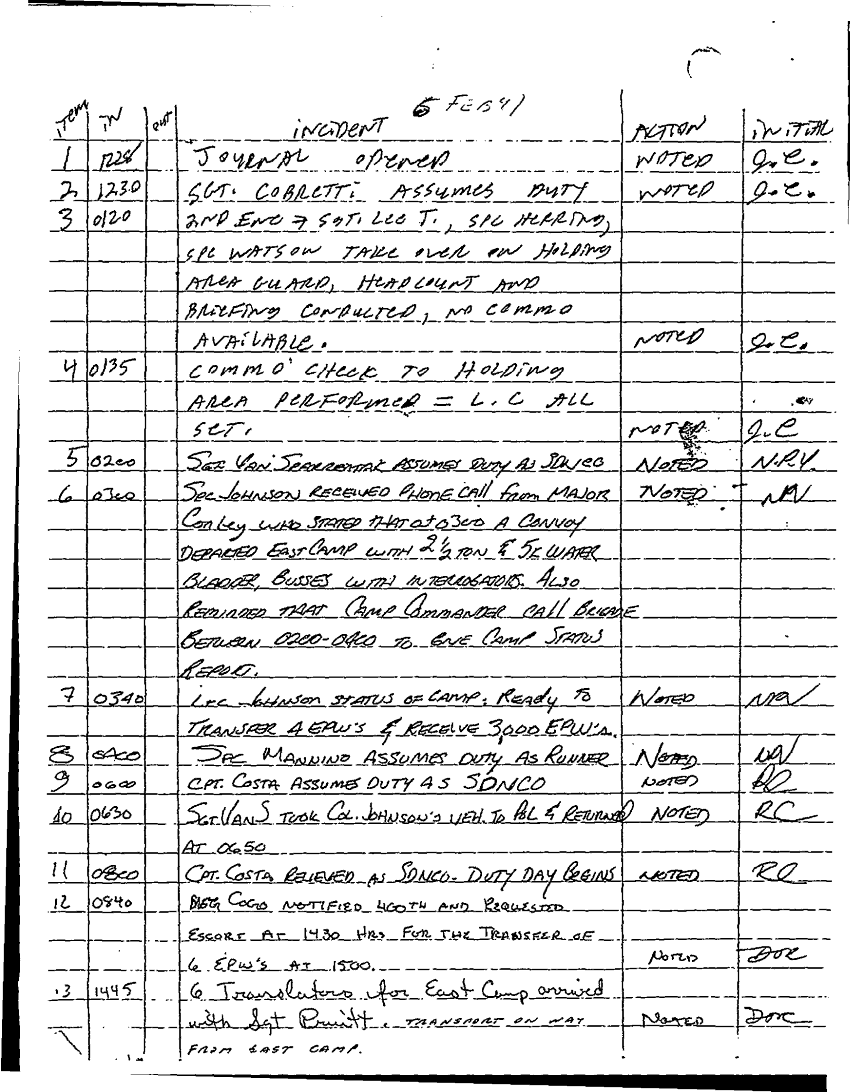 6 FEB 91
item IN out INCIDENT ACTION INITIAL
1 1228 JOURNAL OPENED NOTED J.C.
2 1230 SGT. COBRETTI ASSUMES DUTY NOTED J.C.
3 0120 2ND ENC → SGT. LEE T., SPC HERRING,
SPC WATSON TAKE OVER ON HOLDING
AREA GUARD, HEADCOUNT AND
BRIEFING CONDUCTED, NO COMMO
AVAILABLE. NOTED J.C.
4 0135 COMMO CHECK TO HOLDING
AREA PERFORMED = L.C ALL
SET. NOTED J.C
5 0200 SGT VAN ASSUMES DUTY AS SDNCO NOTED N.P.V.
6 0300 SPC JOHNSON RECEIVED PHONE CALL from MAJOR NOTED NV
Conley WHO STATED THAT at 0300 A CONVOY
DEPARTED EAST CAMP WITH 2½ TON & 5K WATER
BLADDER, BUSSES WITH INTERROGATORS. ALSO
REMINDED THAT CAMP COMMANDER CALL BRIGADE
BETWEEN 0200-0400 TO GIVE CAMP STATUS
REPORT.
7 0340 JOHNSON STATUS OF CAMP: READY TO NOTED
TRANSFER 4 EPW'S & RECEIVE 3,000 EPW'S.
8 0400 SPC MANNINO ASSUMES DUTY AS RUNNER NOTED NV
9 0600 CPT. COSTA ASSUMES DUTY AS SDNCO NOTED RC
10 0630 SGT. VAN S TOOK COL. JOHNSON'S VEH. TO POL & RETURNED NOTED RC
AT 0650
11 0800 CPT. COSTA RELIEVED AS SDNCO- DUTY DAY BEGINS NOTED RC
12 0840 COCO NOTIFIED 400TH AND REQUESTED
ESCORT AT 1430 HRS FOR THE TRANSFER OF
6 EPW'S AT 1500. NOTED DOC
13 1445 6 Translators for East Camp arrived
with Sgt Pruitt. TRANSPORT ON WAY NOTED DOC
FROM EAST CAMP.